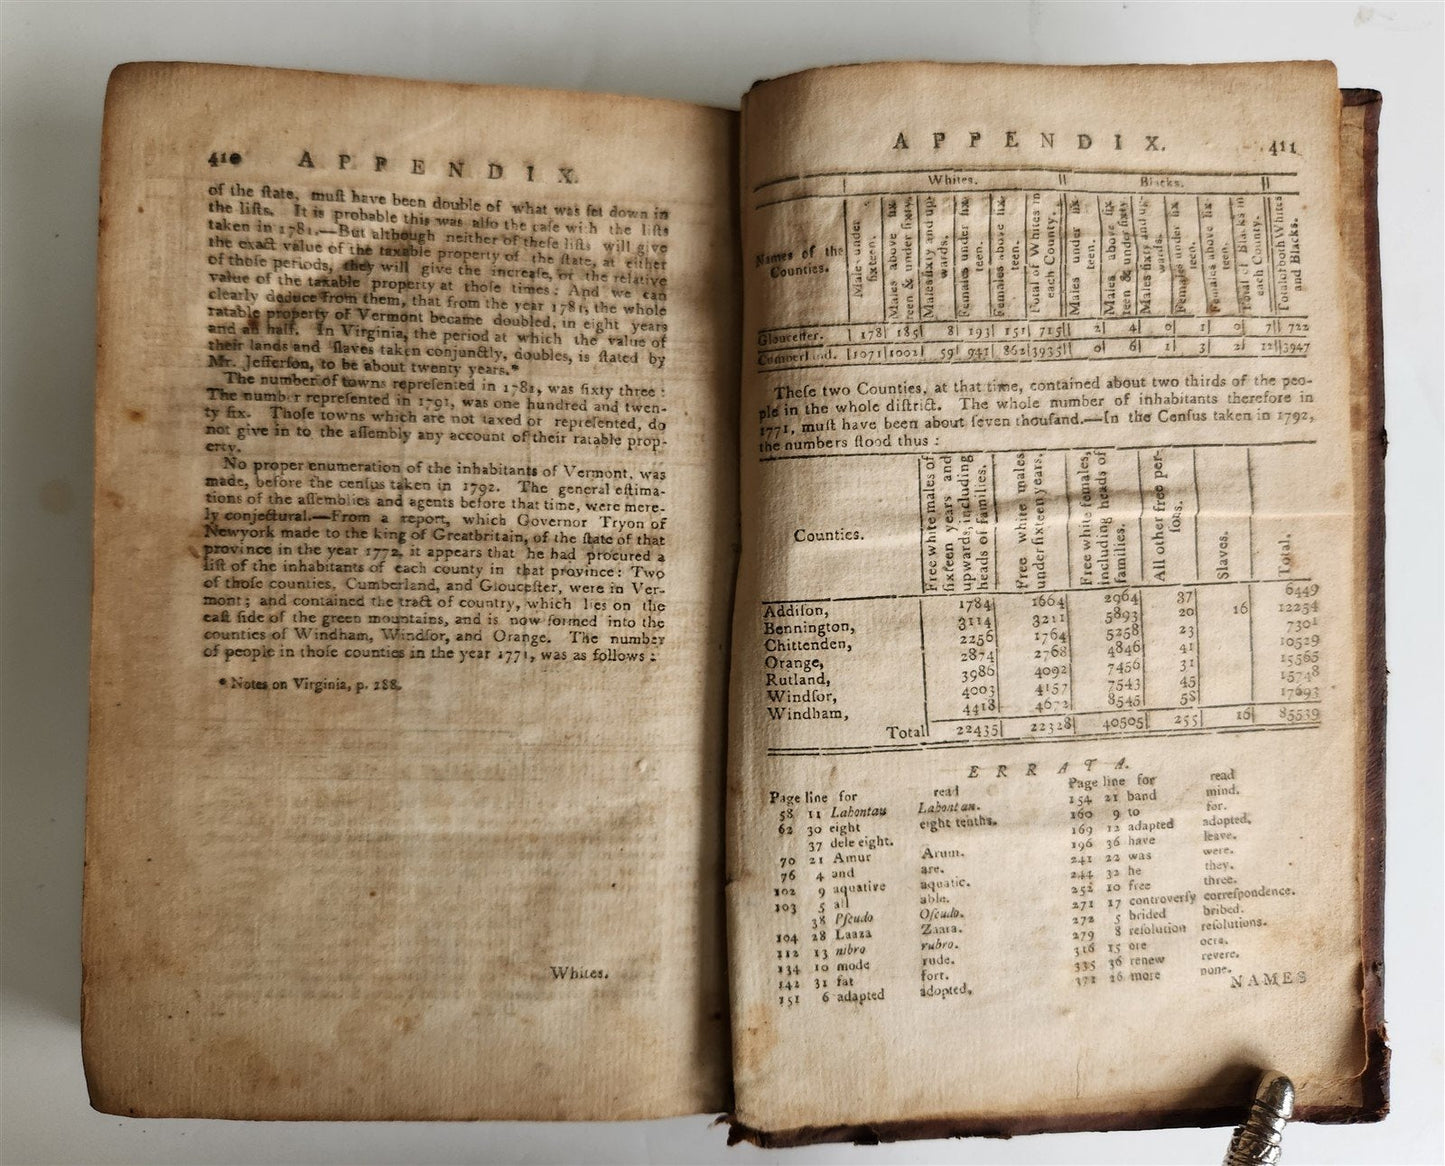 410 APPENDIX.
of the ſtate, muſt have been double of what was ſet down in
the liſts. It is probable this was alſo the caſe with the liſts
taken in 1781.—But although neither of theſe liſts will give
the exact value of the taxable property of the ſtate, at either
of thoſe periods, they will give the increaſe, or the relative
value of the taxable property at thoſe times: And we can
clearly deduce from them, that from the year 1781, the whole
ratable property of Vermont became doubled, in eight years
and an half. In Virginia, the period at which the value of
their lands and ſlaves taken conjunctly, doubles, is ſtated by
Mr. Jefferſon, to be about twenty years.*
The number of towns repreſented in 1781, was ſixty three:
The number repreſented in 1791, was one hundred and twen-
ty ſix. Thoſe towns which are not taxed or repreſented, do
not give in to the aſſembly any account of their ratable prop-
erty.
No proper enumeration of the inhabitants of Vermont, was
made, before the cenſus taken in 1792. The general eſtima-
tions of the aſſemblies and agents before that time, were mere-
ly conjectural.—From a report, which Governor Tryon of
Newyork made to the king of Greatbritain, of the ſtate of that
province in the year 1772, it appears that he had procured a
liſt of the inhabitants of each county in that province: Two
of thoſe counties, Cumberland, and Glouceſter, were in Ver-
mont; and contained the tract of country, which lies on the
eaſt ſide of the green mountains, and is now formed into the
counties of Windham, Windſor, and Orange. The number
of people in thoſe counties in the year 1771, was as follows:
* Notes on Virginia, p. 288.
Whites.
APPENDIX. 411
Whites. Blacks.
Names of the
Counties.
Males under
ſixteen.
Males above ſix
teen & under ſixty.
Males ſixty and up-
wards.
Females under ſix
teen.
Females above ſix
teen.
Total of Whites in
each County.
Males under ſix
teen.
Males above ſix
teen & under ſixty
Males ſixty and up-
wards.
Females under ſix
teen.
Females above ſix
teen.
Total of Blacks in
each County.
Total of both Whites
and Blacks.
Glouceſter. 178 185 8 193 151 715 2 4 0 1 0 7 722
Cumberland. 1071 1002 59 941 862 3935 0 6 1 3 2 12 3947
Theſe two Counties, at that time, contained about two thirds of the peo-
ple in the whole diſtrict. The whole number of inhabitants therefore in
1771, muſt have been about ſeven thouſand.—In the Cenſus taken in 1792,
the numbers ſtood thus:
Counties.
Free white males of
ſixteen years and
upwards, including
heads of families.
Free white males
under ſixteen years.
Free white females,
including heads of
families.
All other free per-
ſons.
Slaves.
Total.
Addiſon, 1784 1664 2964 37 6449
Bennington, 3114 3211 5893 20 16 12254
Chittenden, 2256 1764 5258 23 7301
Orange, 2874 2768 4846 41 10529
Rutland, 3986 4092 7456 31 15565
Windſor, 4003 4157 7543 45 15748
Windham, 4418 4672 8545 58 17693
Total 22435 22328 40505 255 16 85539
ERRATA.
Page line for read
58 11 Lahontau Lahontan.
62 30 eight eight tenths.
37 dele eight.
70 21 Amur Arum.
76 4 and are.
102 9 aquative aquatic.
103 5 all able.
38 Pſeudo Oſeudo.
104 28 Laaza Zaara.
112 13 nibro rubro.
134 10 mode rude.
142 31 fat fort.
151 6 adapted adopted.
Page line for read
154 21 band mind.
160 9 to for.
169 12 adapted adopted,
196 36 have leave.
241 22 was were.
244 32 he they.
252 10 free three.
271 17 controverſy correſpondence.
272 5 brided bribed.
279 8 reſolution reſolutions.
316 15 ore ocra.
335 36 renew revere.
371 26 more none.
NAMES